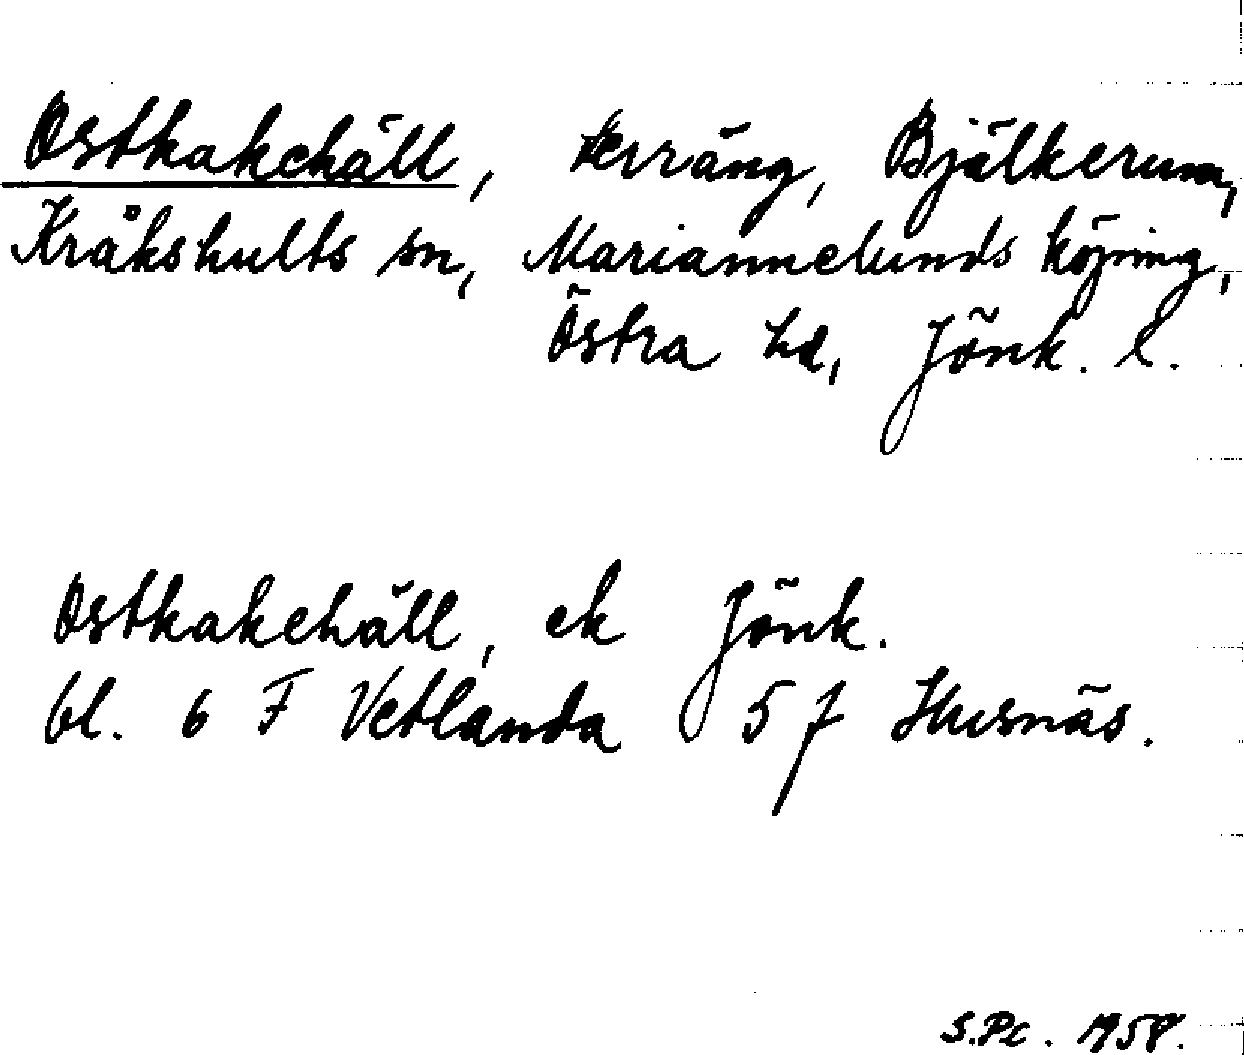 Ostkakehäll, terräng, Bjälkerum,
Kråkshults sn, Mariannelunds köping,
Östra hd, Jönk. l.
Ostkakehäll, ek Jönk.
bl. 6 F Vetlanda 5 f Husnäs.
S.Pc. 1958.